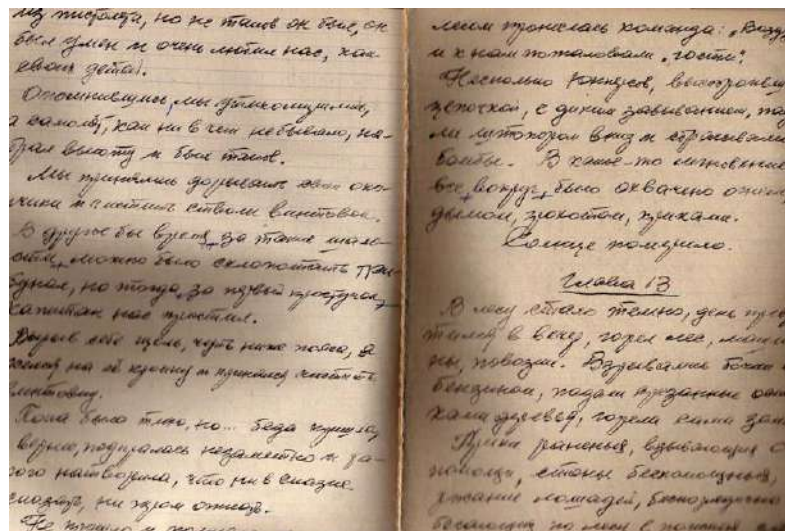 из пистолета, но не таков он был, он
был умен и очень любил нас, как
своих детей.
Опомнившись, мы
а самолёт, как ни в чем небывало, на-
брал высоту и был таков.
Мы принялись дорывать свои око-
пчики и чистить стволы винтовок.
В другое бы время, за такие шало-
сти, можно было схлопотать три-
бунал, но тогда, за первый проступок,
капитан нас простил.
Вырыв себе щель, чуть ниже пояса, я
уселся на её кромку и принялся чистить
винтовку.
Пока было тихо, но... беда пришла,
верно, подкралась незаметно и та-
кого натворила, что ни в сказке
сказать, ни пером описать.
Не прошло и
лесом пронеслась команда: „Возду
и к нам пожаловали „гости“.
Несколько Юнкерсов, выстроивши
цепочкой, с диким завыванием, пада
ли штопором вниз и сбрасывали
бомбы. В какое-то мгновение
все, вокруг, было охвачено огнем,
дымом, грохотом, криками.
Солнце померкло.
Глава 13
В лесу стало темно, день прев
тился в вечер, горел лес, маши
ны, повозки. Взрывались бочки с
бензином, падали срезанные оско
ками деревья, горела сама зем
Крики раненых, взывающих о
помощи, стоны беспомощных,
ржание лошадей, беспорядочно
бегающих по лесу с